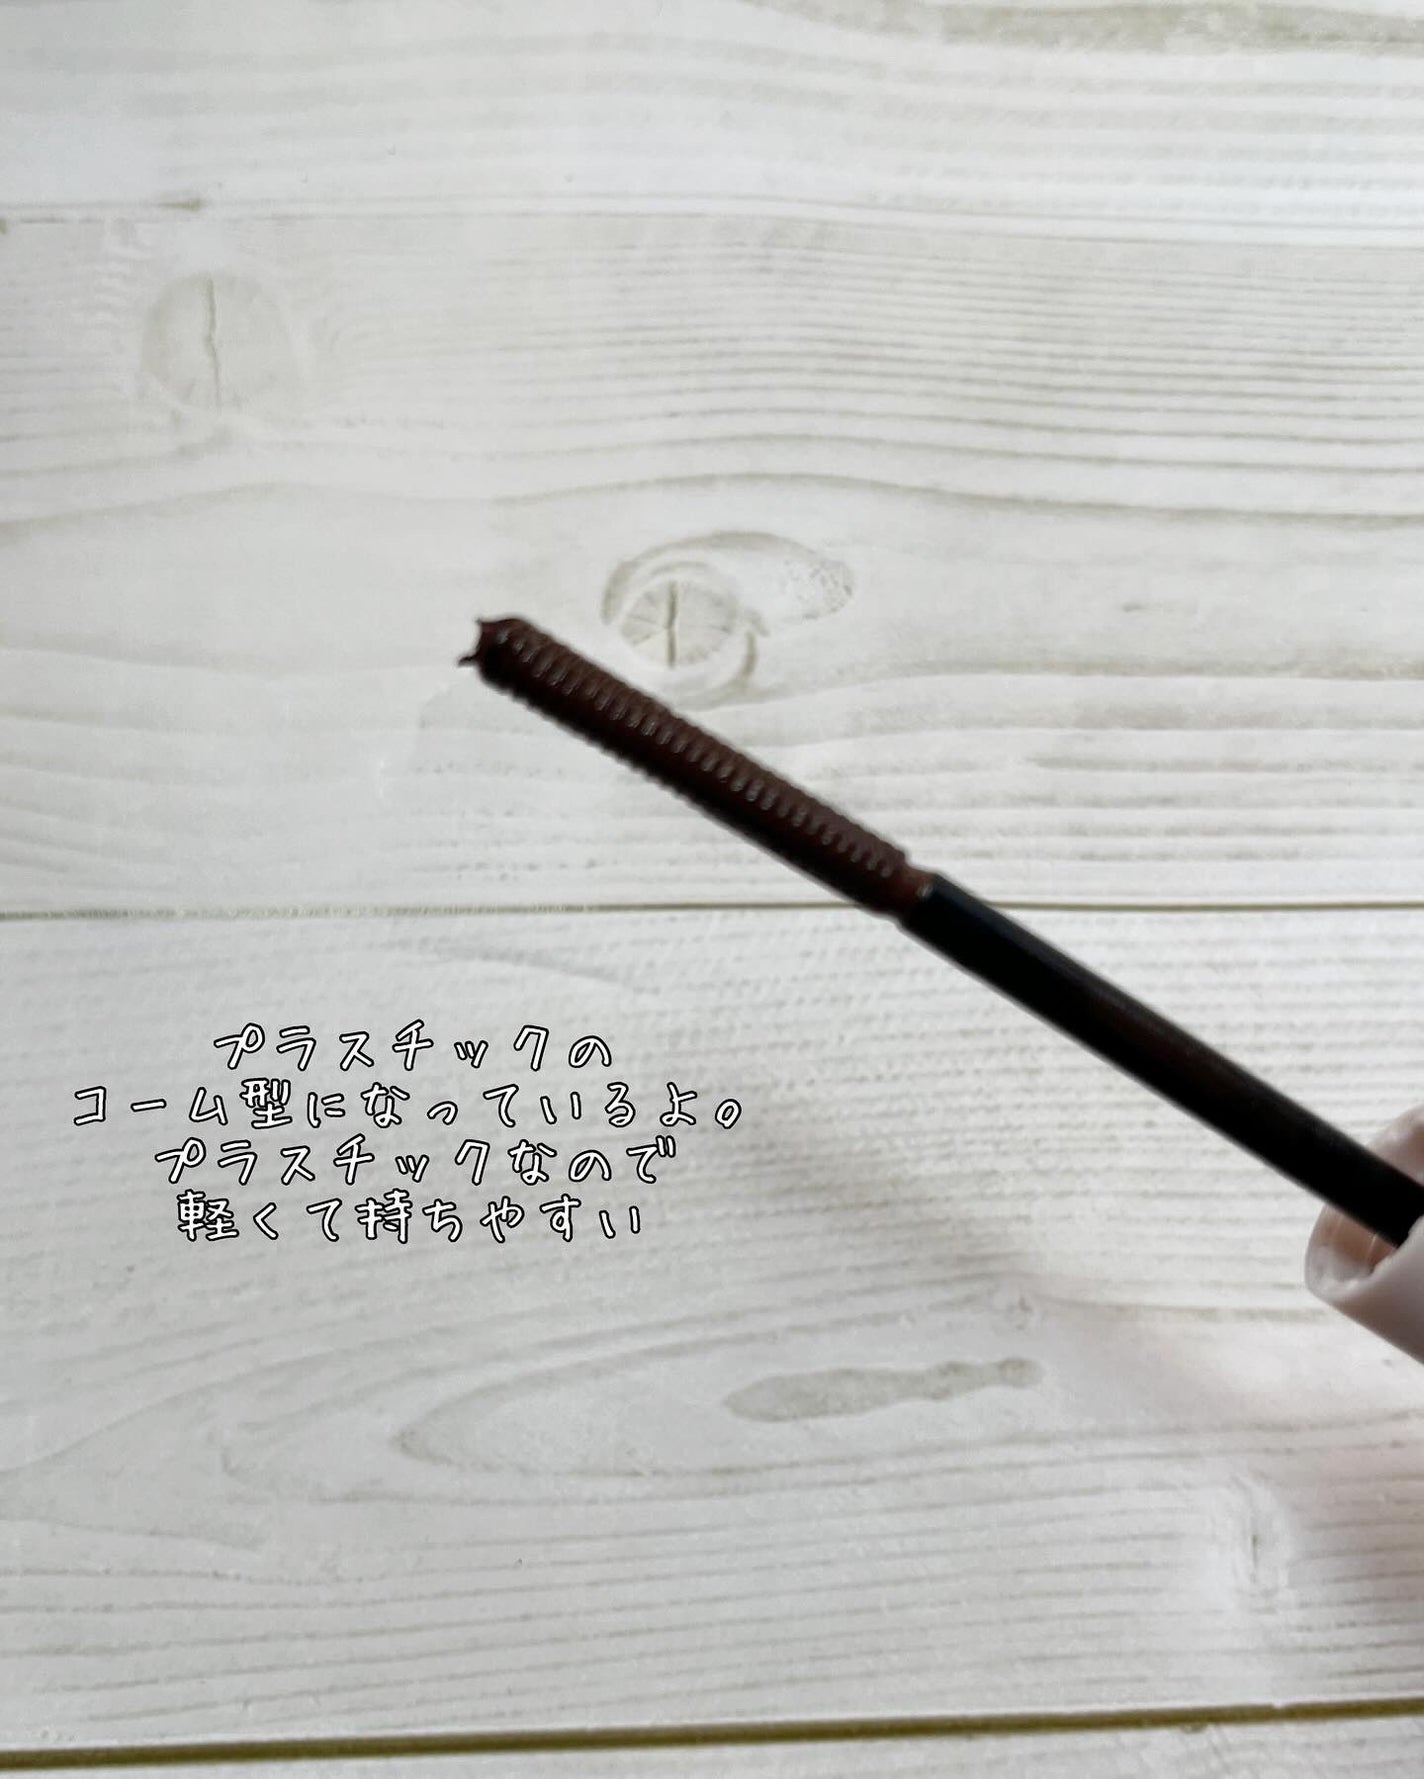 プラスチックの
コーム型になっているよ。
プラスチックなので
軽くて持ちやすい